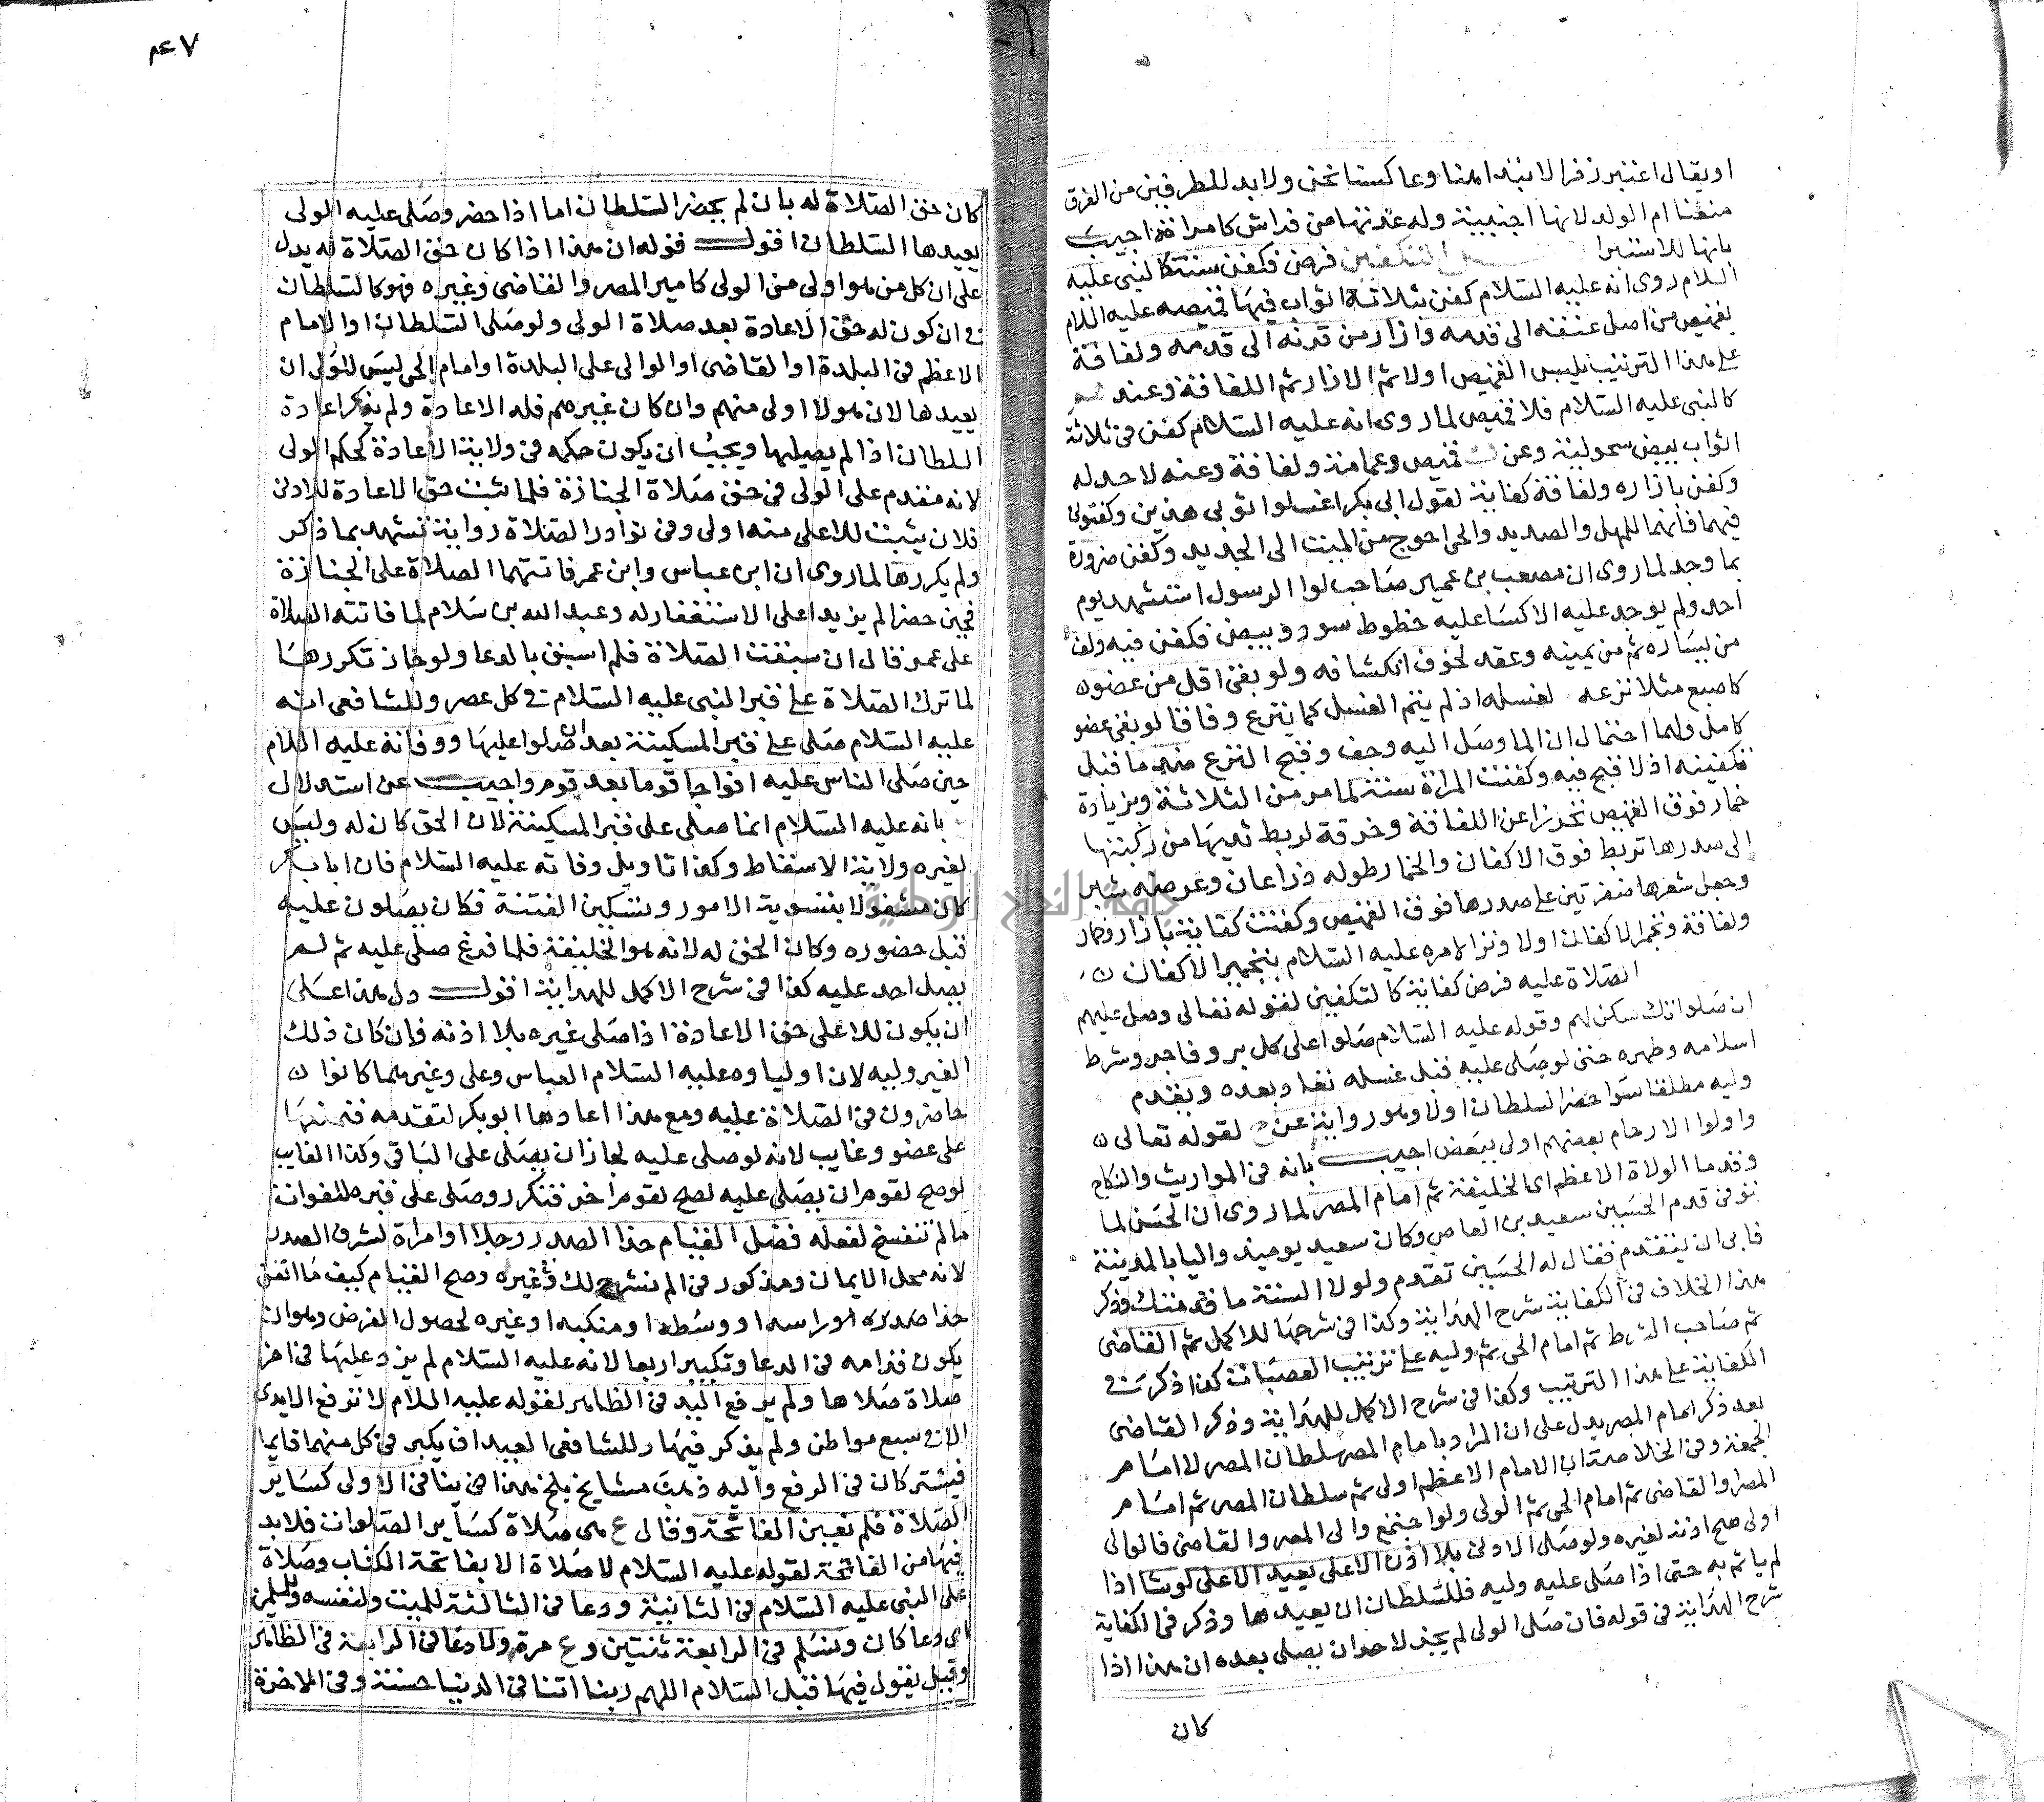 او يقال اعتبر زفر الابتداء هنا وعاكسنا نحن ولا بد للطرفين من الفرق
منعنا ام الولد لانها اجنبية وله عدتها من فراش كامراة اجيب
بانها للاستبرا التكفين فرض فكفن سنته كالنبي عليه
السلام روى انه عليه السلام كفن بثلاثة اثواب فيها قميصه عليه السلام
بقميص من اصل عنقه الى قدمه وازار من قرنه الى قدمه ولفافة
على هذا الترتيب يلبس القميص اولا ثم الازار ثم اللفافة وعند
كالنبي عليه السلام فلا قميص لما روى انه عليه السلام كفن في ثلاثة
اثواب بيض سحولية وعن قميص وعمامة ولفافة وعنه لا حد له
وكفن بازاره ولفافة كفاية لقول ابي بكر اغسلوا ثوبي هذين وكفنوني
فيهما فانهما للمهل والصديد والحي احوج من الميت الى الجديد وكفن ضرورة
بما وجد لما روى ان مصعب بن عمير صاحب لوا الرسول استشهد يوم
احد ولم يوجد عليه الا كسا عليه خطوط سود وبيض فكفن فيه ولف
من يساره ثم من يمينه وعقد لخوف انكشافه ولو بقي اقل من عضو
كاصبع مثلا نزعه لغسله اذ لم يتم الغسل كما ينزع وفاقا لو بقي عضو
كامل ولهما احتمال ان الما وصل اليه وجف وقبح النزع ضد ما قبل
تكفينه اذ لا قبح فيه وكفنت المراة سنة لما مر من الثلاثة وبزيادة
خمار فوق القميص تحرزا عن اللفافة وخرقة لربط ثديها من ركبتها
الى صدرها تربط فوق الاكفان والخمار طوله ذراعان وعرضه شبر
وجعل شعرها ضفرتين على صدرها فوق القميص وكفنت كفاية بازار وخمار
ولفافة وتجمر الاكفان اولا وترا لامره عليه السلام بتجمير الاكفان
الصلاة عليه فرض كفاية كالتكفين لقوله تعالى وصل عليهم
ان صلواتك سكن لهم وقوله عليه السلام صلوا على كل بر وفاجر وشرط
اسلامه وطهره حتى لو صلى عليه قبل غسله تعاد بعده ويقدم
وليه مطلقا سوا حضر السلطان اولا وهو رواية عن ح لقوله تعالى
واولوا الارحام بعضهم اولى ببعض اجيب بانه في المواريث والنكاح
وقدما الولاة الاعظم اى الخليفة ثم امام المصر لما روى ان الحسن لما
توفي قدم الحسين سعيد بن العاص وكان سعيد يوميذ واليا بالمدينة
فابى ان يتقدم فقال له الحسين تقدم ولولا السنة ما قدمتك وذكر
هذا الخلاف في الكفاية شرح الهداية وكذا في شرحها للاكمل ثم القاضي
ثم صاحب الشرط ثم امام الحي ثم وليه على ترتيب العصبات كذا ذكر في
الكفاية على هذا الترتيب وكذا في شرح الاكمل للهداية وذكر القاضي
بعد ذكر امام المصر يدل على ان المراد بامام المصر سلطان المصر لا امام
الجمعة وفي الخلاصة ان الامام الاعظم اولى ثم سلطان المصر ثم امام
المصر والقاضي ثم امام الحي ثم الولي ولو اجتمع والي المصر والقاضي فالوالي
اولى صح اذنه لغيره ولو صلى الادنى بلا اذن الاعلى يعيد الاعلى لو شا اذا
لم ياتم به حتى اذا صلى عليه وليه فللسلطان ان يعيدها وذكر في الكفاية
شرح الهداية في قوله فان صلى الولي لم يجز لاحد ان يصلي بعده ان هذا اذا
كان
٤٧
كان حق الصلاة له بان لم يحضر السلطان اما اذا حضر وصلى عليه الولي
يعيدها السلطان اقول قوله ان هذا اذا كان حق الصلاة له يدل
على ان كل من هو اولى من الولي كامير المصر والقاضي وغيره فهو كالسلطان
في ان كون له حق الاعادة بعد صلاة الولي ولو صلى السلطان او الامام
الاعظم في البلدة او القاضي او الوالي على البلدة او امام الحي ليس للولي ان
يعيدها لان هولا اولى منهم وان كان غيرهم فله الاعادة ولم يذكر اعادة
السلطان اذا لم يصليها ويجب ان يكون حكمه في ولاية الاعادة كحكم الولي
لانه مقدم على الولي في حق صلاة الجنازة فلما ثبت حق الاعادة للادنى
فلان يثبت للاعلى منه اولى وفي نوادر الصلاة رواية تشهد بما ذكر
ولم يكررها لما روى ان ابن عباس وابن عمر فاتتهما الصلاة على الجنازة
فحين حضرا لم يزيدا على الاستغفار له وعبد الله بن سلام لما فاتته الصلاة
على عمر قال ان سبقت الصلاة فلم اسبق بالدعا ولو جاز تكررها
لما ترك الصلاة على قبر النبي عليه السلام في كل عصر وللشافعي انه
عليه السلام صلى على قبر المسكينة بعد ان صلوا عليها ووفاته عليه السلام
حين صلى الناس عليه افواجا قوما بعد قوم واجيب عن استدلال
بانه عليه السلام انما صلى على قبر المسكينة لان الحق كان له وليس
لغيره ولاية الاسقاط وكذا تاويل وفاته عليه السلام فان ابا بكر
كان مشغولا بتسوية الامور وتسكين الفتنة فكان يصلون عليه
قبل حضوره وكان الحق له لانه هو الخليفة فلما فرغ صلى عليه ثم لم
يصل احد عليه كذا في شرح الاكمل للهداية اقول دل هذا على
ان يكون للاعلى حق الاعادة اذا صلى غيره بلا اذنه فان كان ذلك
الغير وليه لان اولياوه عليه السلام العباس وعلى وغيرهما كانوا
حاضرون في الصلاة عليه ومع هذا اعادها ابو بكر لتقدمه
على عضو وغايب لانه لو صلى عليه لجاز ان يصلى على الباقي وكذا الغايب
لو صح لقوم ان يصلى عليه لصح لقوم اخر فتكرر وصلى على قبره للفوات
ما لم تنفسخ لفعله فضل القيام حذا الصدر رجلا او امراة لشرف الصدر
لانه محل الايمان ومذكور في الم نشرح لك وغيره وصح القيام كيف ما اتفق
حذا صدره او راسه او وسطه او منكبه او غيره لحصول الفرض وهو ان
يكون قدامه في الدعا وتكبير اربعا لانه عليه السلام لم يزد عليها في اخر
صلاة صلاها ولم يرفع اليد في الظاهر لقوله عليه السلام لا ترفع الايدي
الا في سبع مواطن ولم يذكر فيها وللشافعي العيد ان يكبر في كل منهما قايما
فيشتركان في الرفع واليه ذهب مشايخ بلخ هذا في الاولى كساير
الصلاة فلم تعين الفاتحة وقال ع هي صلاة كساير الصلوات فلا بد
فيها من الفاتحة لقوله عليه السلام لا صلاة الا بفاتحة الكتاب وصلاة
على النبي عليه السلام في الثانية ودعا في الثالثة للميت ولنفسه وللمسلمين
اى دعا كان وسلم في الرابعة ثنتين وع مرة ولا دعا في الرابعة في الظاهر
وقيل يقول فيها قبل السلام اللهم ربنا اتنا في الدنيا حسنة وفي الاخرة